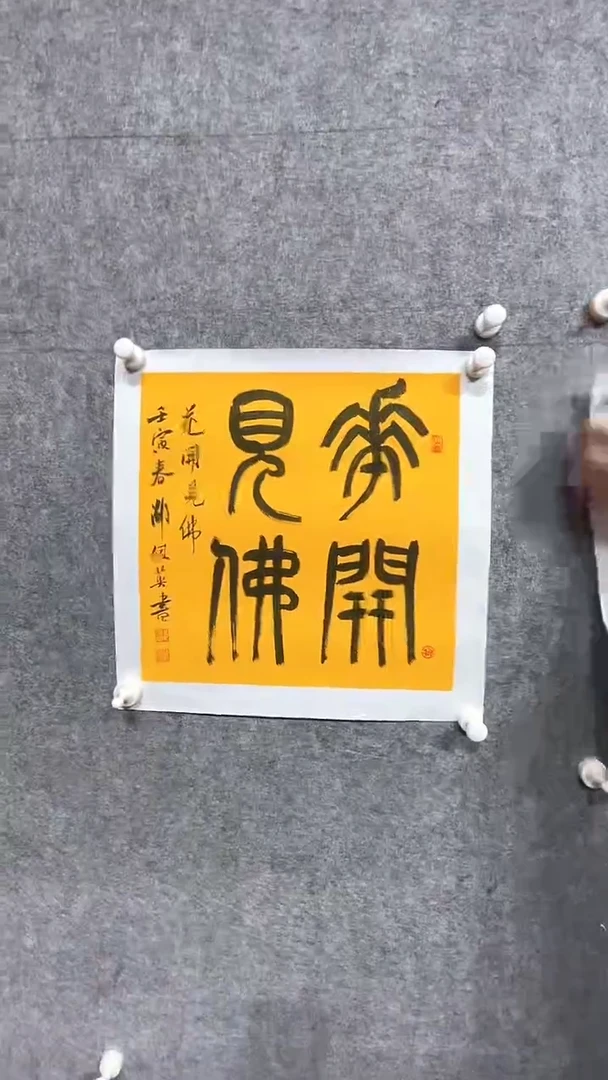 華開
見佛
花開見佛
壬寅春
俊英書